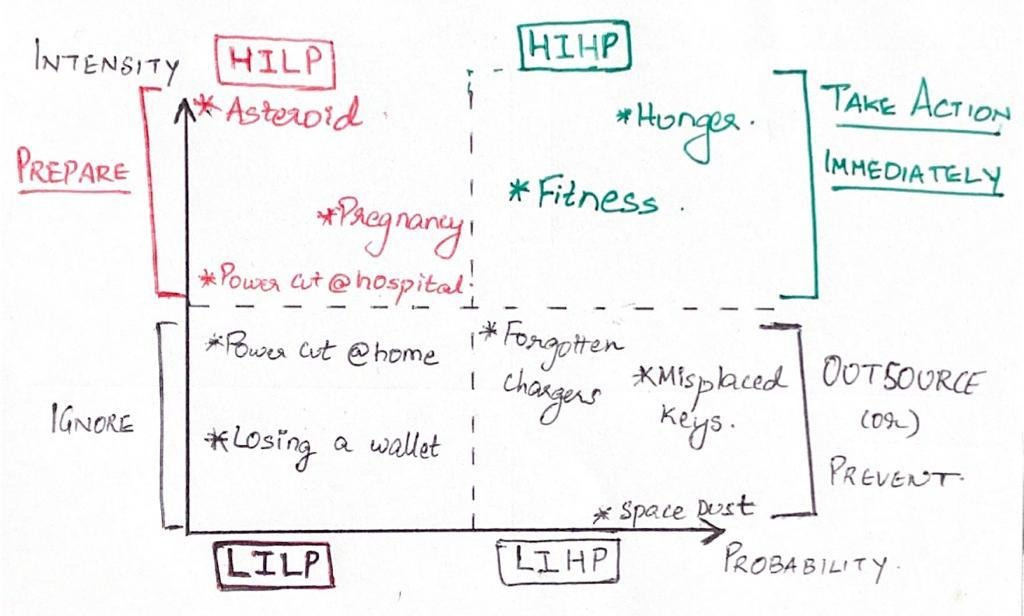 INTENSITY
HILP
HIHP
* Asteroid
* Hunger.
TAKE ACTION
IMMEDIATELY
PREPARE
* Fitness.
* Pregnancy
* Power cut @hospital.
* Power cut @home
* Forgotten
chargers
* Misplaced
keys.
OUTSOURCE
(OR)
PREVENT.
IGNORE
* Losing a wallet
* Space Dust
LILP
LIHP
PROBABILITY.